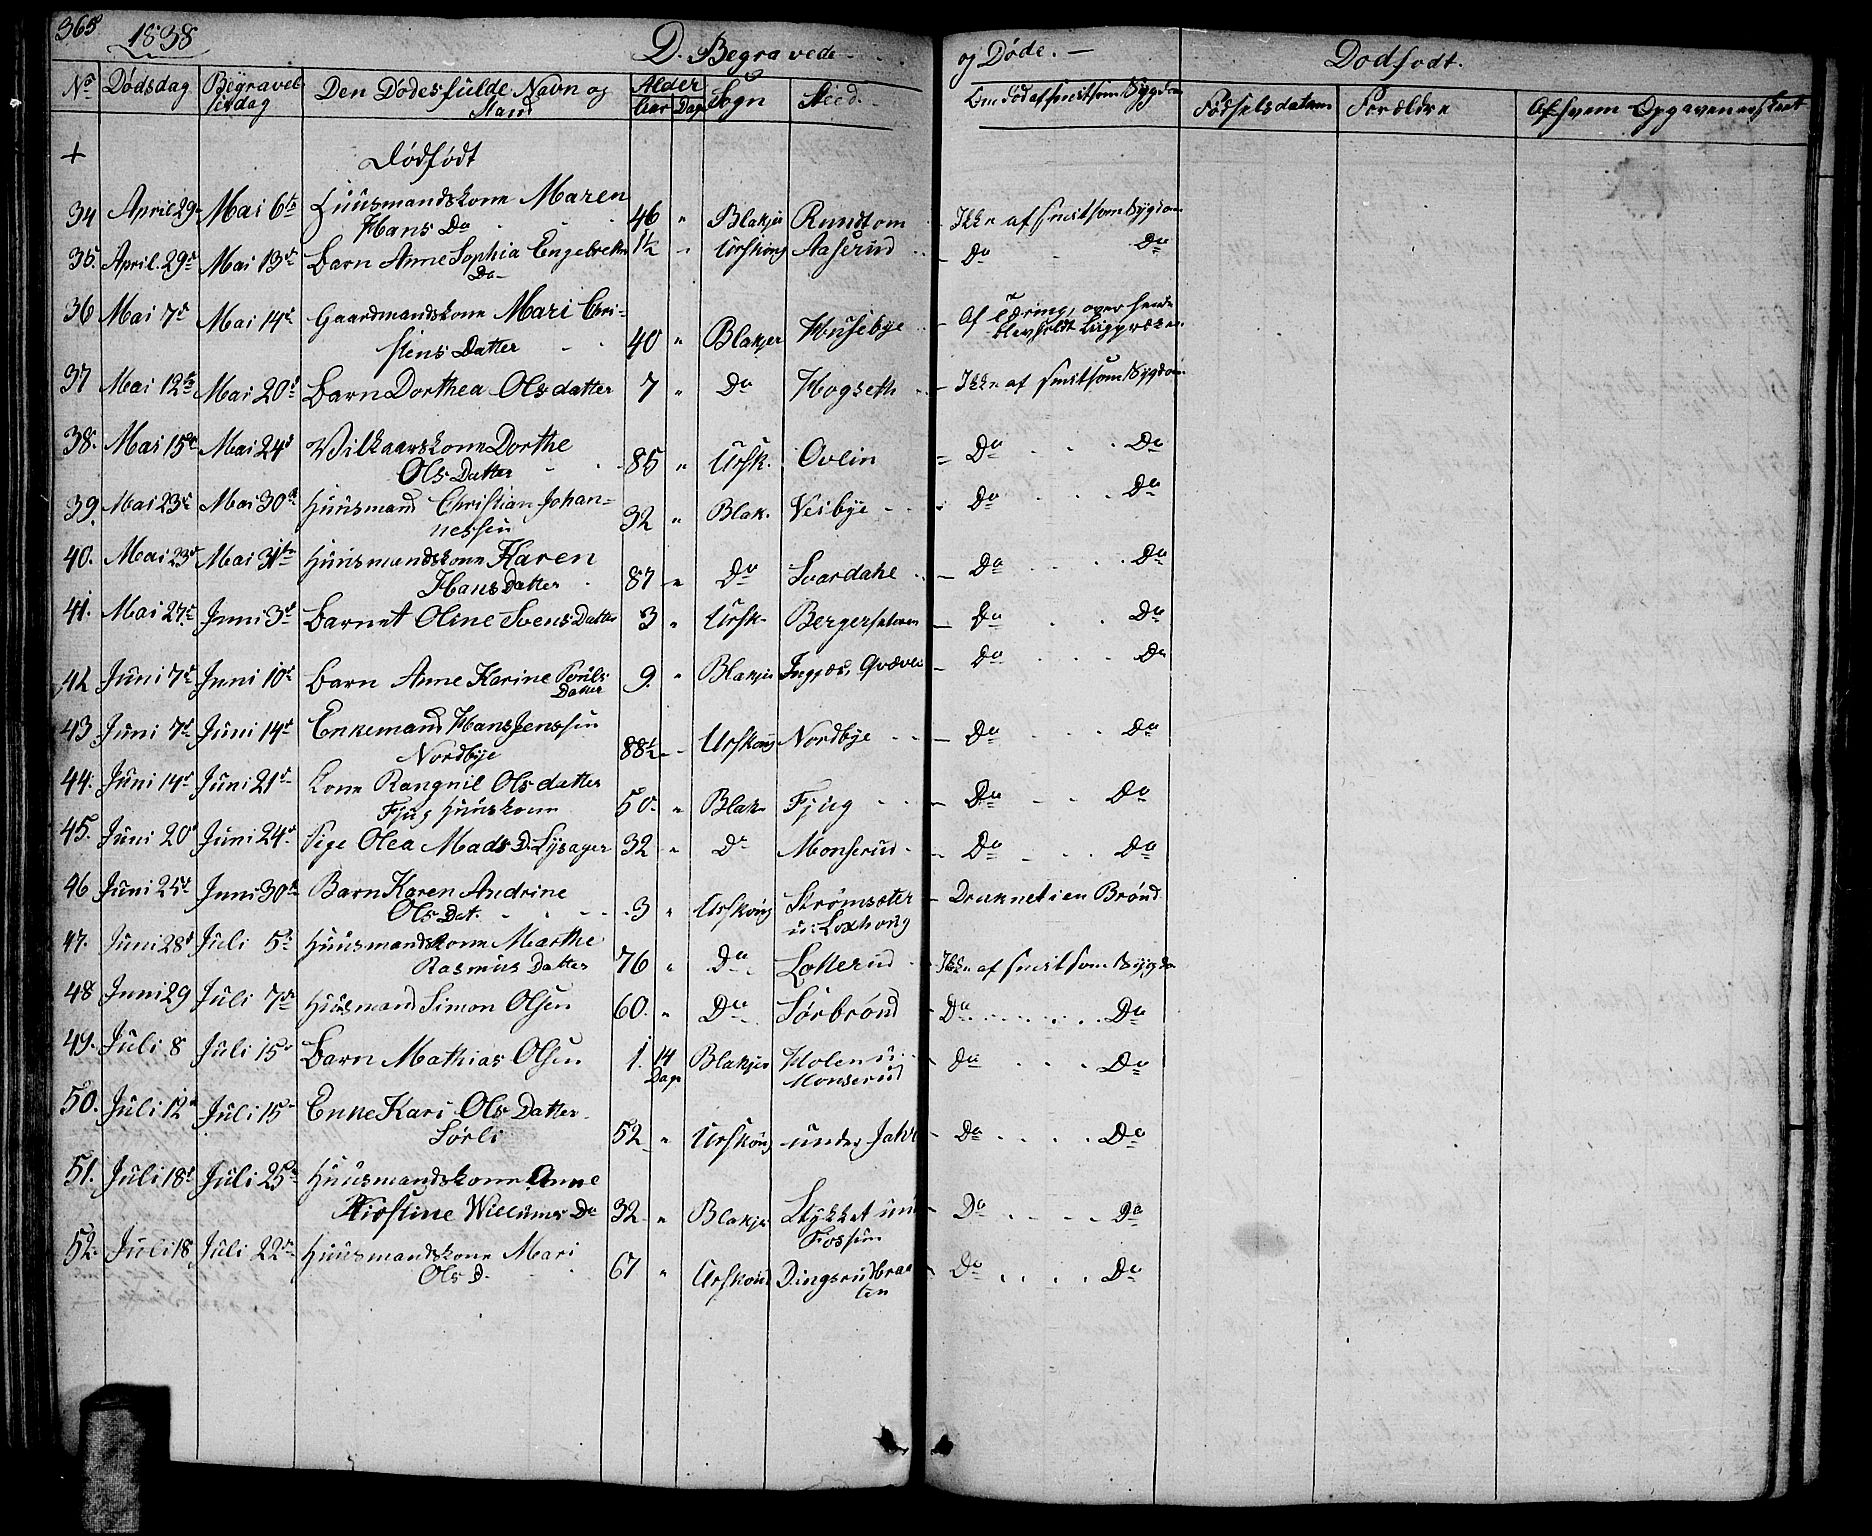 365 1838 D. Begravede og Døde. — Dødfødt.
No Dødsdag Begravelsesdag Den Dødes fulde Navn og Stand Alder Aar Dage Sogn Sted. Om død af smitsom Sygdom Fødselsdatum Forældre Af hvem Opgaven er skeet
+ Dødfødt
34 April 29 Mai 6te Huusmandskone Maren Hans Do 46 " Blakjer Rundtom - Ikke af smitsom Sygdom
35. April 29de Mai 13de Barn Anne Sophia Engebrets Da 1½ - Urskoug Aaserud - Do Do
36 Mai 7de Mai 14de Gaardmandskone Mari Christens Datter 40 " Blakjer Husebye - Af Tæring, over hende blev holdt Ligpræken
37 Mai 12te Mai 20de Barn Dorthea Olsdatter 7 " Do Hogseth - Ikke af smitsom Sygdom
38. Mai 15de Mai 24d Vilkaarskone Dorthe Ols Datter 85 " Ursk. Ovlin - Do Do
39. Mai 23de Mai 30te Huusmand Christian Johannessen 32 " Blak. Veibye - Do Do
40. Mai 23de Mai 31te Huusmandskone Karen Hans Datter 87 " Do Svardahl - Do Do
41. Mai 27de Juni 3d Barnet Oline Svens Datter 3 " Ursk. Bergersetern - Do Do
42 Juni 7de Juni 10de Barn Anne Karine Pouls Datter 9. " Blakjer - Do Do
43 Juni 7de Juni 14de Enkemand Hans Jenssen Nordbye 88½ - Urskoug Nordbye - Do Do
44. Juni 14de Juni 21de Kone Rangnil Olsdatter Fjug Huuskone 50. " Blak Fjug - Do Do
45. Juni 20d Juni 24de Pige Olea Mads D. Lysager 32 " Do Monserud - Do Do
46 Juni 25de Juni 30te Barn Karen Andrine Ols Dat. 3 " Urskoug Strømsæter - Druknet i en Brønd
47. Juni 28d Juli 5te Huusmandskone Marthe Rasmus Datter 76 " Do Lotterud - Ikke af smitsom Sygdo
48 Juni 29 Juli 7de Huusmand Simon Olsen 60. " Do Sørbrønd Do Do
49. Juli 8 Juli 15de Barn Mathias Olsen 1. 14 Dage Blakjer Holen u. Monserud - Do Do
50. Juli 12te Juli 15de Enke Kari Ols Datter Sørli 52 " Urskoug under Jahr - Do Do
51. Juli 18de Juli 25de Huusmandskone Anne Kirstine Willums Da 32. " Blakjer Stykket un Fossum - Do Do
52. Juli 18 Juli 22de Huusmandskone Mari Ols D. 67 " Urskoug Dingsrudbraaten - Do Do